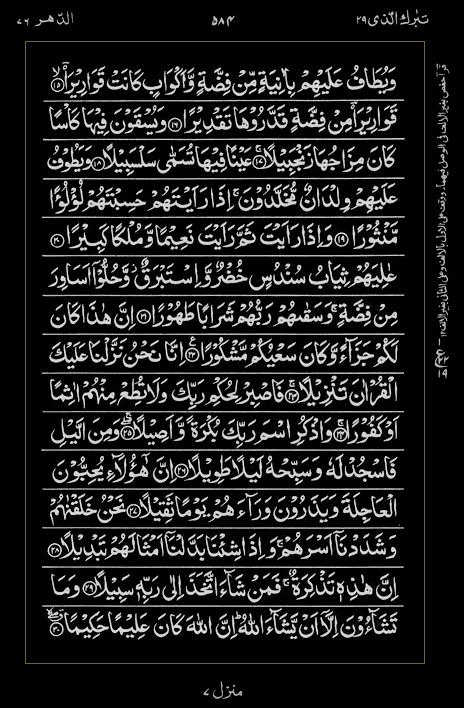 تبٰرك الذى ٢٩ ٥٨٤ الدهر ٧٦
وَيُطَافُ عَلَيْهِمْ بِاٰنِيَةٍ مِّنْ فِضَّةٍ وَّاَكْوَابٍ كَانَتْ قَوَارِيْرَا۠ ۙ‏﴿۱۵﴾
قَوَارِيْرَا۟ مِنْ فِضَّةٍ قَدَّرُوْهَا تَقْدِيْرًا‏﴿۱۶﴾ وَيُسْقَوْنَ فِيْهَا كَاْسًا
كَانَ مِزَاجُهَا زَنْجَبِيْلًا ۚ‏﴿۱۷﴾ عَيْنًا فِيْهَا تُسَمّٰى سَلْسَبِيْلًا‏﴿۱۸﴾ وَيَطُوْفُ
عَلَيْهِمْ وِلْدَانٌ مُّخَلَّدُوْنَ ۚ اِذَا رَاَيْتَهُمْ حَسِبْتَهُمْ لُؤْلُؤًا
مَّنْثُوْرًا‏﴿۱۹﴾ وَاِذَا رَاَيْتَ ثَمَّ رَاَيْتَ نَعِيْمًا وَّمُلْكًا كَبِيْرًا‏﴿۲۰﴾
عٰلِيَهُمْ ثِيَابُ سُنْدُسٍ خُضْرٌ وَّاِسْتَبْرَقٌ ۡ وَّحُلُّوْۤا اَسَاوِرَ
مِنْ فِضَّةٍ ۚ وَسَقٰىهُمْ رَبُّهُمْ شَرَابًا طَهُوْرًا‏﴿۲۱﴾ اِنَّ هٰذَا كَانَ
لَكُمْ جَزَآءً وَّكَانَ سَعْيُكُمْ مَّشْكُوْرًا‏﴿۲۲﴾ اِنَّا نَحْنُ نَزَّلْنَا عَلَيْكَ
الْقُرْاٰنَ تَنْزِيْلًا ۚ‏﴿۲۳﴾ فَاصْبِرْ لِحُكْمِ رَبِّكَ وَلَا تُطِعْ مِنْهُمْ اٰثِمًا
اَوْ كَفُوْرًا ۚ‏﴿۲۴﴾ وَاذْكُرِ اسْمَ رَبِّكَ بُكْرَةً وَّاَصِيْلًا ۖۚ‏﴿۲۵﴾ وَمِنَ الَّيْلِ
فَاسْجُدْ لَهٗ وَسَبِّحْهُ لَيْلًا طَوِيْلًا‏﴿۲۶﴾ اِنَّ هٰٓؤُلَآءِ يُحِبُّوْنَ
الْعَاجِلَةَ وَيَذَرُوْنَ وَرَآءَهُمْ يَوْمًا ثَقِيْلًا‏﴿۲۷﴾ نَحْنُ خَلَقْنٰهُمْ
وَشَدَدْنَاۤ اَسْرَهُمْ ۚ وَاِذَا شِئْنَا بَدَّلْنَاۤ اَمْثَالَهُمْ تَبْدِيْلًا‏﴿۲۸﴾
اِنَّ هٰذِهٖ تَذْكِرَةٌ ۚ فَمَنْ شَآءَ اتَّخَذَ اِلٰى رَبِّهٖ سَبِيْلًا‏﴿۲۹﴾ وَمَا
تَشَآءُوْنَ اِلَّاۤ اَنْ يَّشَآءَ اللّٰهُ ؕ اِنَّ اللّٰهَ كَانَ عَلِيْمًا حَكِيْمًا ۖ‏﴿۳۰﴾
قرأ حفص بغير الالف فى الوصل فيهما ووقف على الاول بالالف وعلى الثانى بغير الالف ١٢
منزل ٧